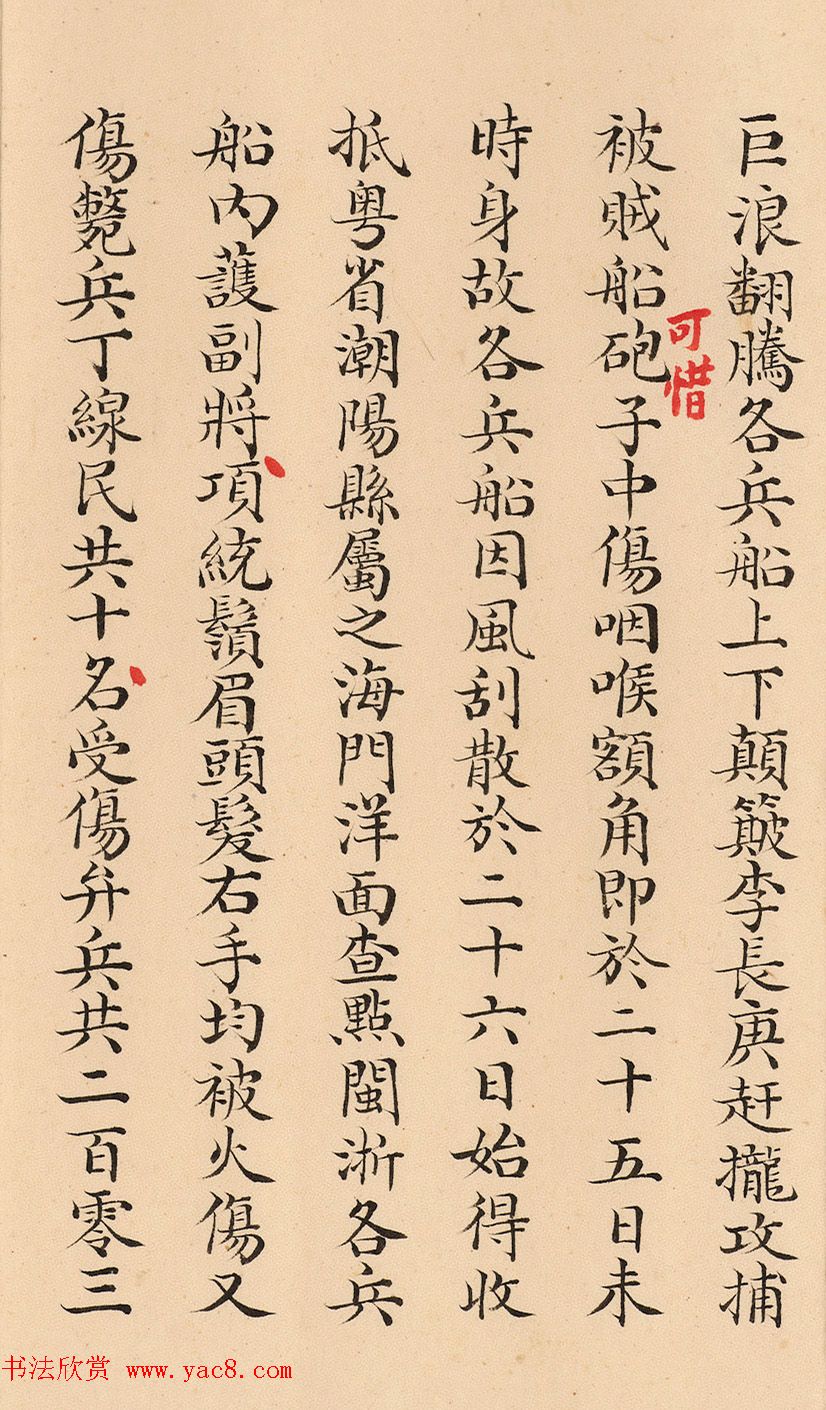 巨浪翻騰各兵船上下顛簸李長庚赶攏攻捕
被賊船砲子中傷咽喉額角即於二十五日未
可惜
時身故各兵船因風刮散於二十六日始得收
抵粤省潮陽縣屬之海門洋面查點閩浙各兵
船内護副將項統鬚眉頭髮右手均被火傷又
傷斃兵丁線民共十名受傷弁兵共二百零三
书法欣赏 www.yac8.com